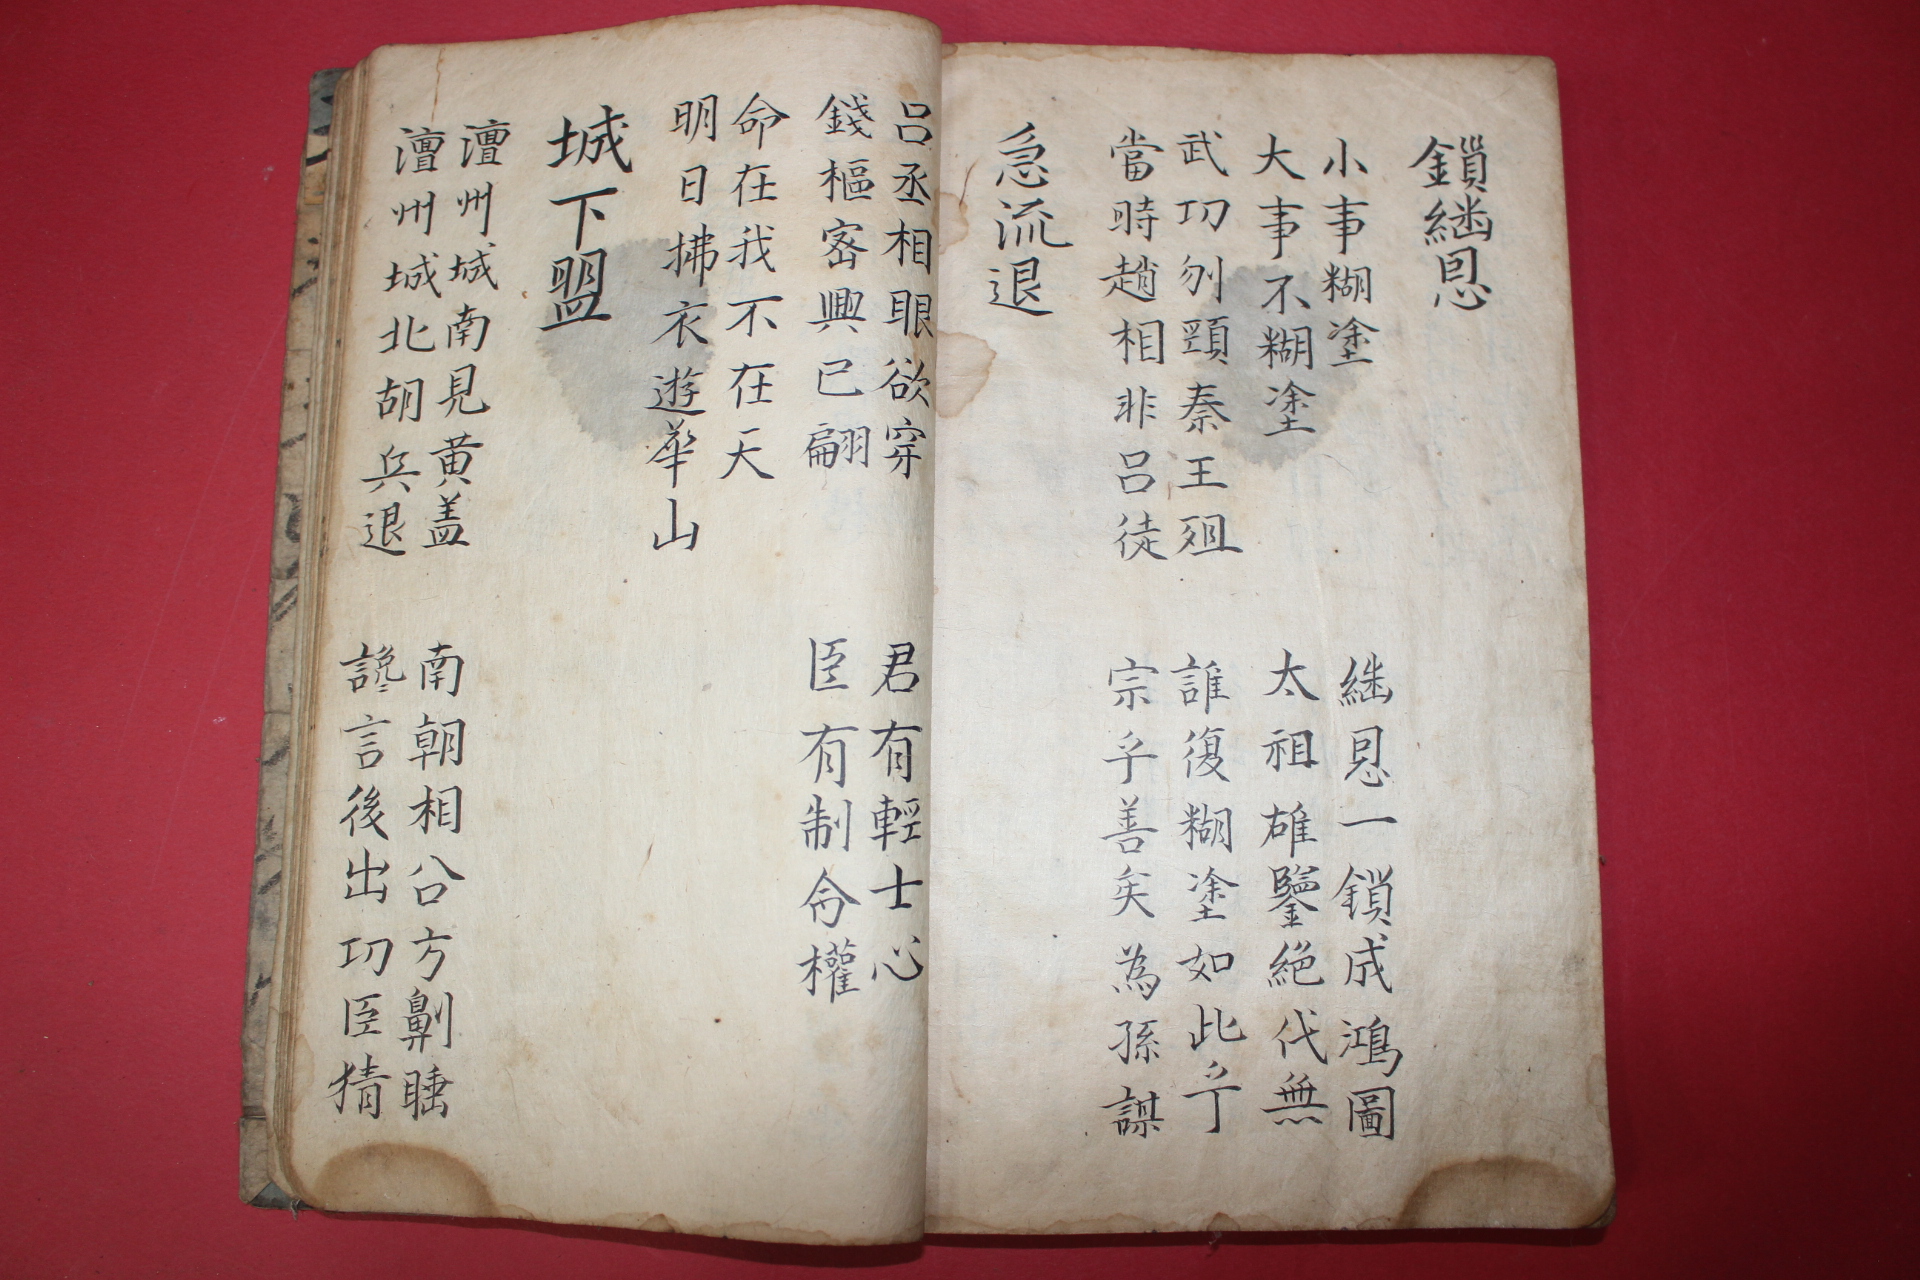 鎖継恩
小事糊塗　継恩一鎖成鴻圖
大事不糊塗　太祖雄鑒絕代無
武功刎頸秦王殂　誰復糊塗如此乎
當時趙相非呂徒　宗乎善矣為孫謀
急流退
呂丞相眼欲穿　君有輕士心
錢樞密興已翩　臣有制命權
命在我不在天
明日拂衣遊華山
城下盟
澶州城南見黄盖　南朝相公方劓睡
澶州城北胡兵退　讒言後出功臣猜